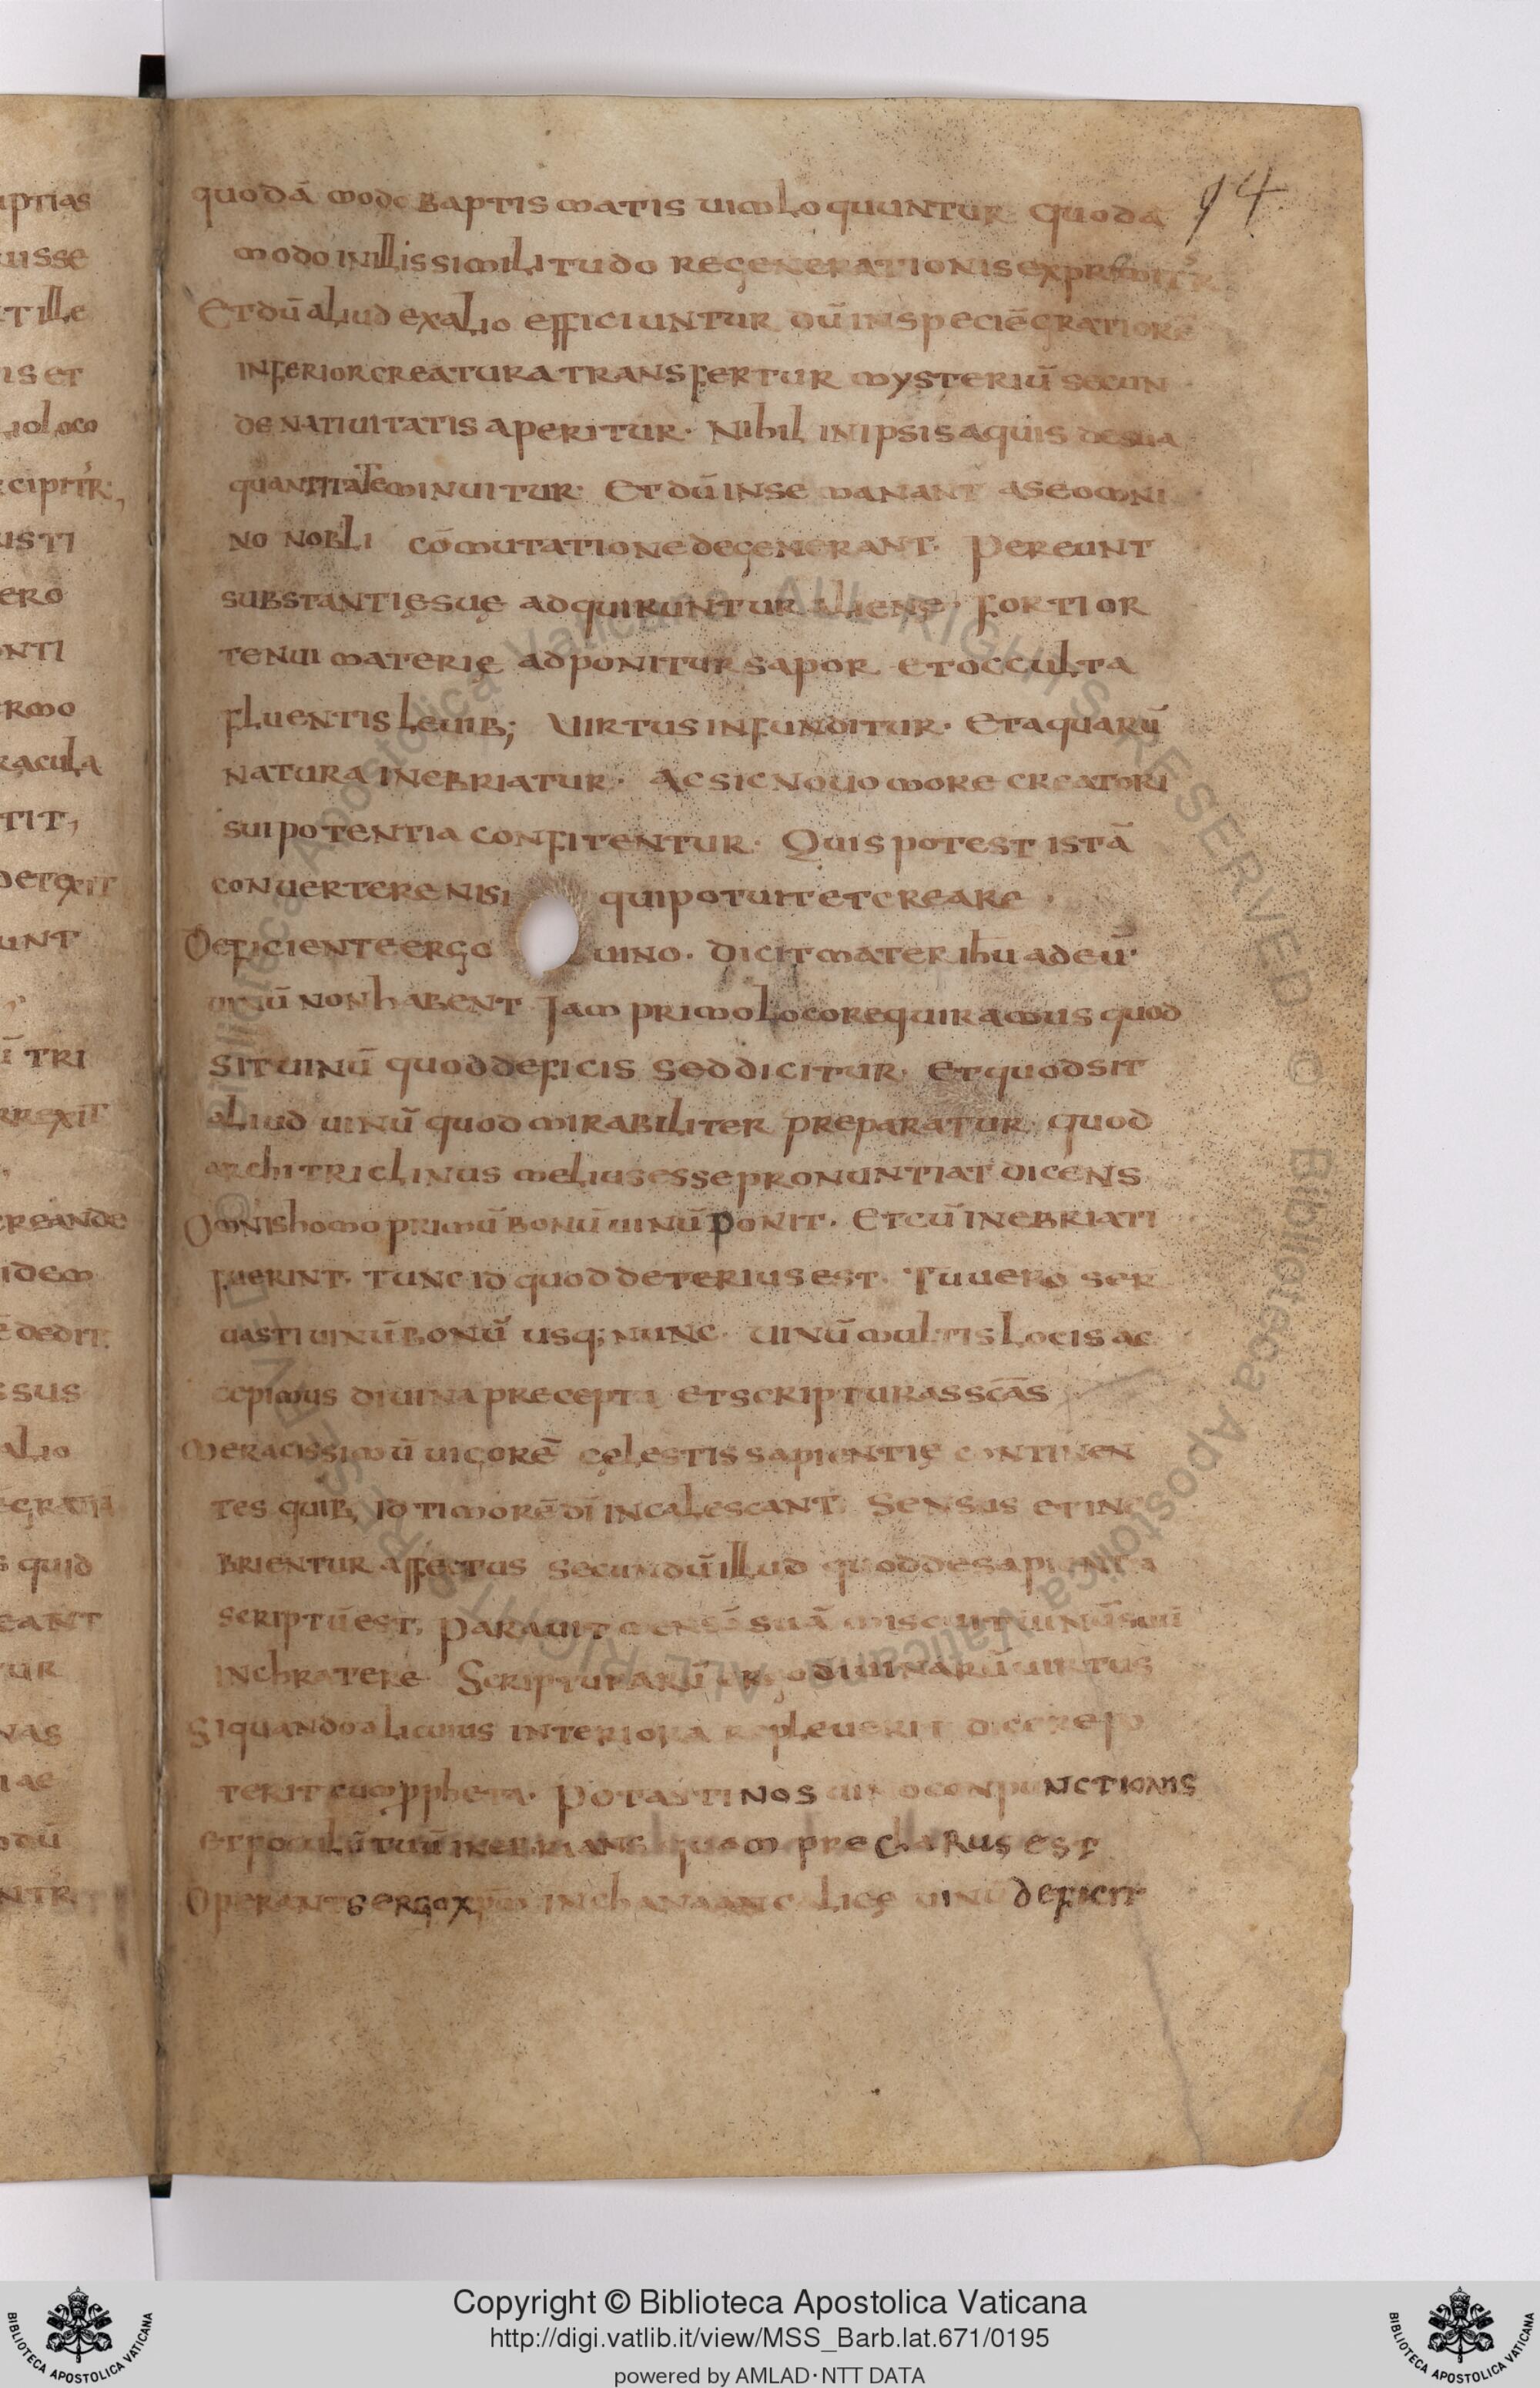 94
quodā modo baptismatis uim loquuntur quodā
modo in illis similitudo regenerationis exprimit'r
Et dū aliud ex alio efficiuntur dū in speciē gratiorē
inferior creatura transfertur mysteriū secun
de natiuitatis aperitur· Nihil in ipsis aquis de sua
quantitate minuitur· Et dū in se manant a se omni
no nobli cōmutatione degenerant· Pereunt
substantię suę adquiruntur alienę· fortior
tenui materię adponitur sapor et occulta
fluentis leuib; uirtus infunditur· Et aquarū
natura inebriatur· Ac sic nouo more creatori
sui potentia confitentur· Quis potest istā
conuertere nisi qui potuit et creare·
Deficiente ergo uino· dicit mater ihu ad eū·
uinū non habent Iam primo loco requiramus quod
sit uinū quod deficis sed dicitur· et quod sit
aliud uinū quod mirabiliter preparatur quod
architriclinus melius esse pronuntiat dicens
Omnis homo primū bonū uinū ponit· Et cū inebriati
fuerint· tunc id quod deterius est· Tu uero ser
uasti uinū bonū usq; nunc· uinū multis locis ac
cepimus diuina precepta et scripturas scās
Meracissimū uigorē cęlestis sapientię continen
tes quib; id timorē dī incalescant Sensus et ine
brientur affectus secundū illud quod de sapientia
scriptū est, parauit mensā suā miscuit uinū suū
in chratere· Scripturarū ergo diuinarū uirtus
Si quando alicuius interiora repleuerit dicere po
terit cum ppheta· Potasti nos uino conpunctionis
et poculū tuū inebrians quam preclarus est
Operante ergo xpm in chanaan galileę uinū deficit
Copyright © Biblioteca Apostolica Vaticana
http://digi.vatlib.it/view/MSS_Barb.lat.671/0195
powered by AMLAD·NTT DATA